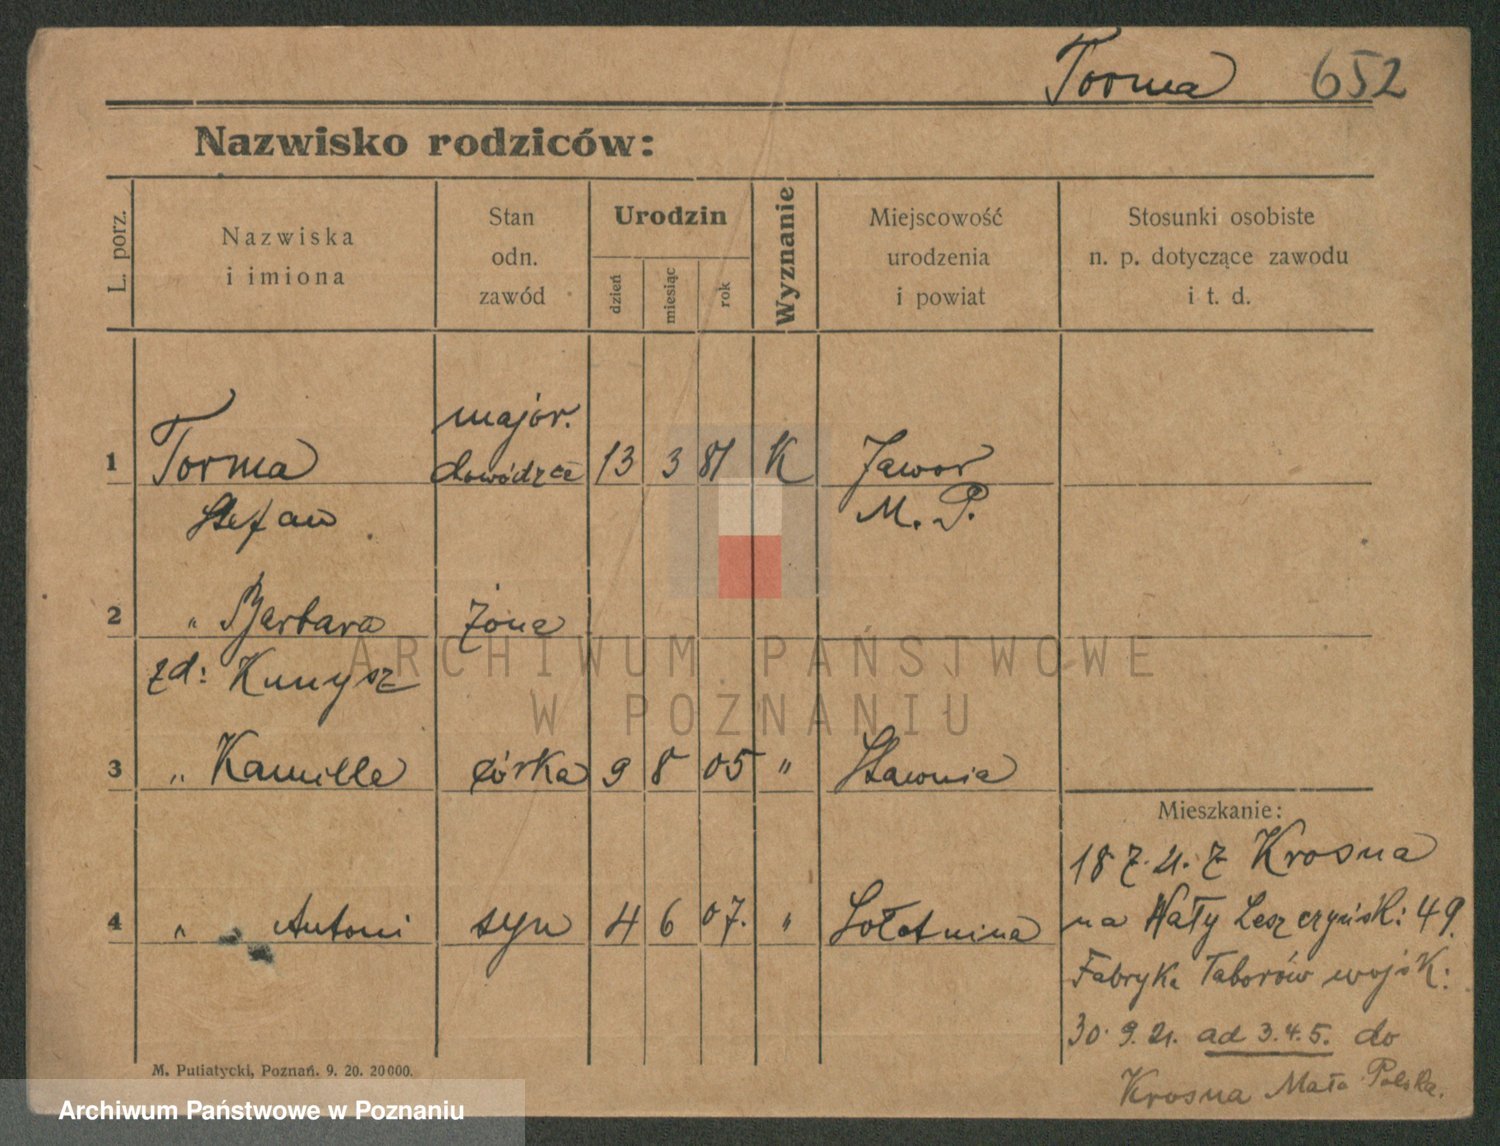 Torma 652
Nazwisko rodziców:
L. porz.
Nazwiska
i imiona
Stan
odn.
zawód
Urodzin
dzień
miesiąc
rok
Wyznanie
Miejscowość
urodzenia
i powiat
Stosunki osobiste
n. p. dotyczące zawodu
i t. d.
major.
1 Torma dowódzca 13 3 81 K Jawor
Stefan M. P.
2 " Barbara żona
zd: Kunysz
3 " Kamilla córka 9 8 05 "
Mieszkanie:
18 7. 21. z Krosna
4 " Antoni syn 4 6 07. " Sołotnina na Wały Leszczyńsk: 49.
Fabryka Taborów wojsk:
30. 9. 21. ad 3. 4. 5. do
Krosna Mało Polska.
M. Putiatycki, Poznań. 9. 20. 20000.
ARCHIWUM PAŃSTWOWE
W POZNANIU
Archiwum Państwowe w Poznaniu